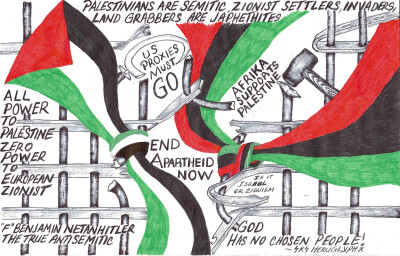 PALESTINIANS ARE SEMITIC ZIONIST SETTLERS, INVADERS,
LAND GRABBERS ARE JAPHETHITES
U.S.
PROXIES
MUST
GO
AFRIKA
SUPPORTS
PALESTINE
ALL
POWER
TO
PALESTINE
ZERO
POWER
TO
EUROPEAN
ZIONIST
END
APARTHEID
NOW
IS IT
ISRAEL
OR ZIONISM
"F" BENJAMIN NETANHITLER
THE TRUE ANTISEMITIC
GOD
HAS NO CHOSEN PEOPLE!